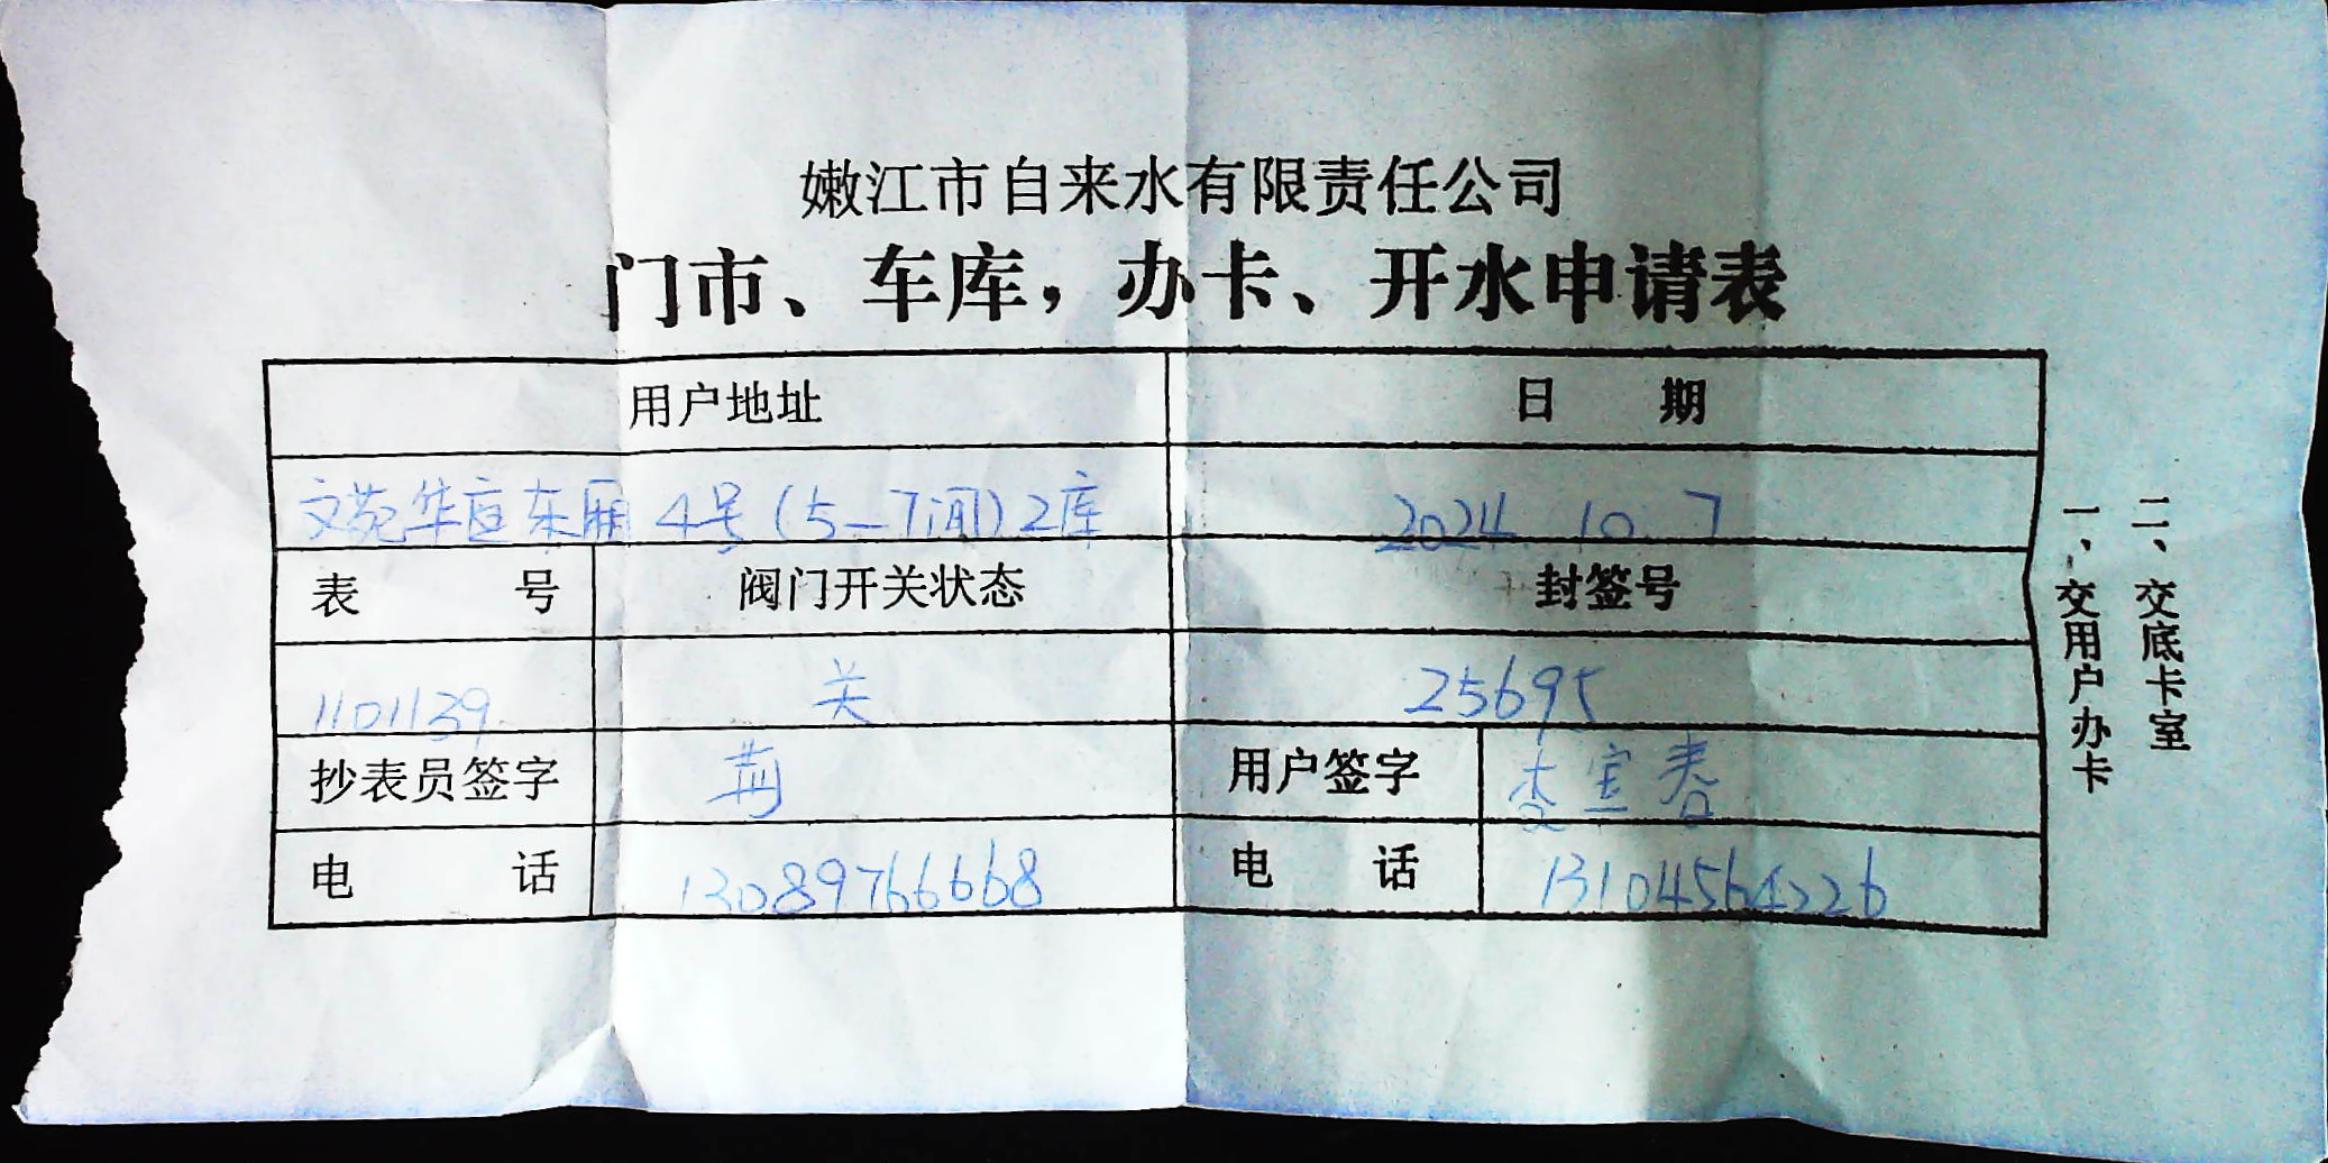 嫩江市自来水有限责任公司
门市、车库，办卡、开水申请表
用户地址 日 期
文苑华庭东厢 4号(5-7间)2库 2024.10.7
表 号 阀门开关状态 封签号
1101139 关 25695
抄表员签字 用户签字
电 话 13089766668 电 话 13104564226
一、交用户办卡
二、交底卡室